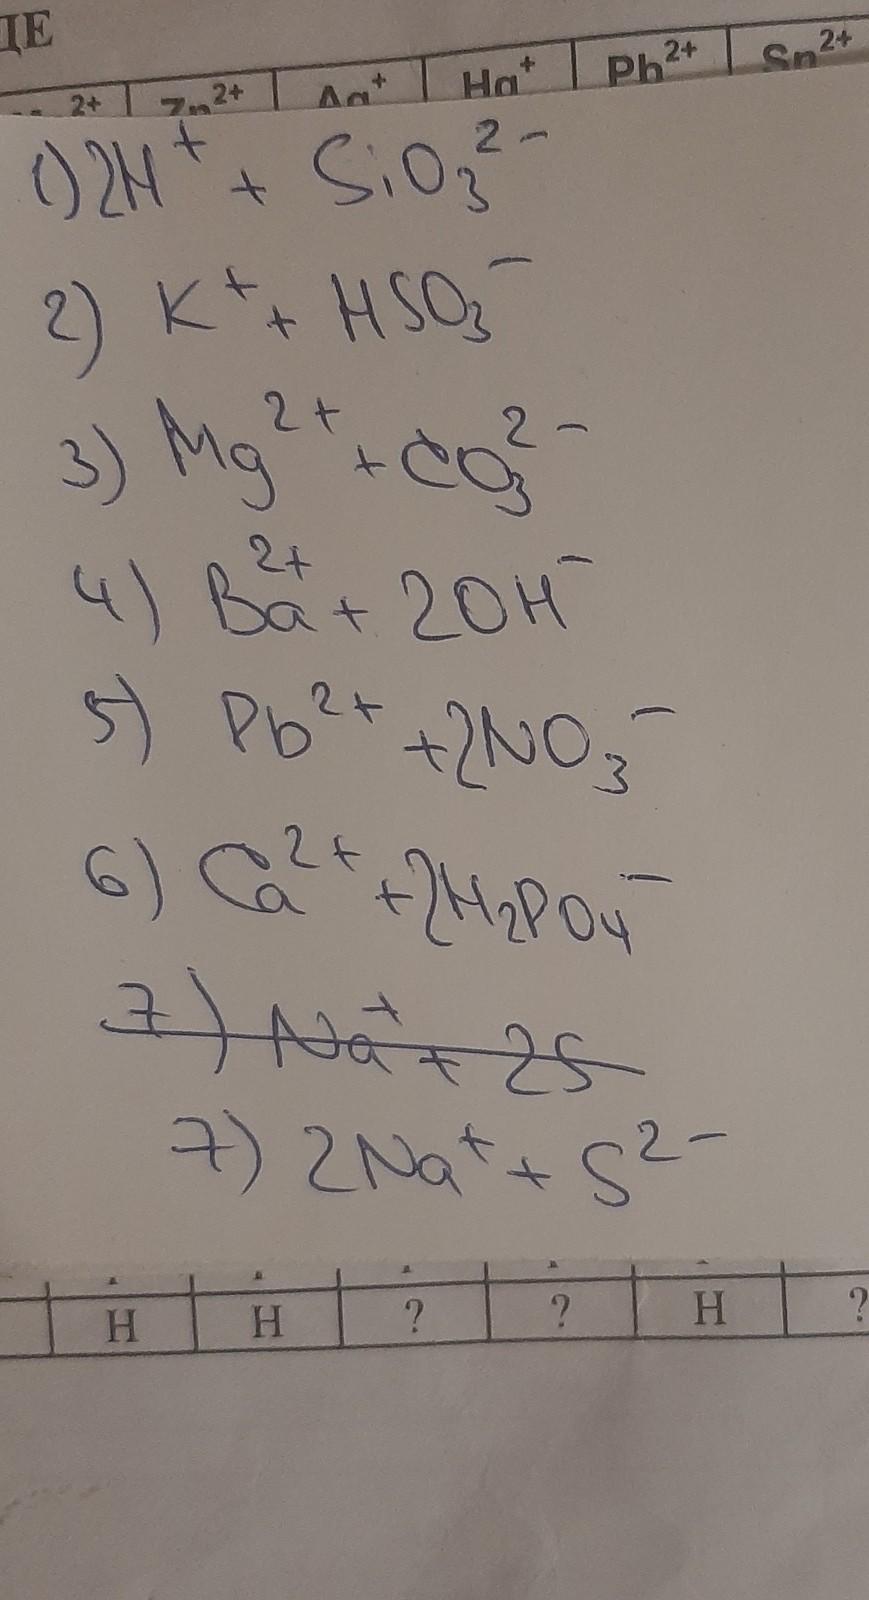 ЦЕ
2+ Zn²⁺ Ag⁺ Hg⁺ Pb²⁺ Sn²⁺
1) 2H⁺ + SiO₃²⁻
2) K⁺ + HSO₃⁻
3) Mg²⁺ + CO₃²⁻
4) Ba²⁺ + 2OH⁻
5) Pb²⁺ + 2NO₃⁻
6) Ca²⁺ + 2H₂PO₄⁻
7) Na⁺ + 2S
7) 2Na⁺ + S²⁻
Н Н ? ? Н ?